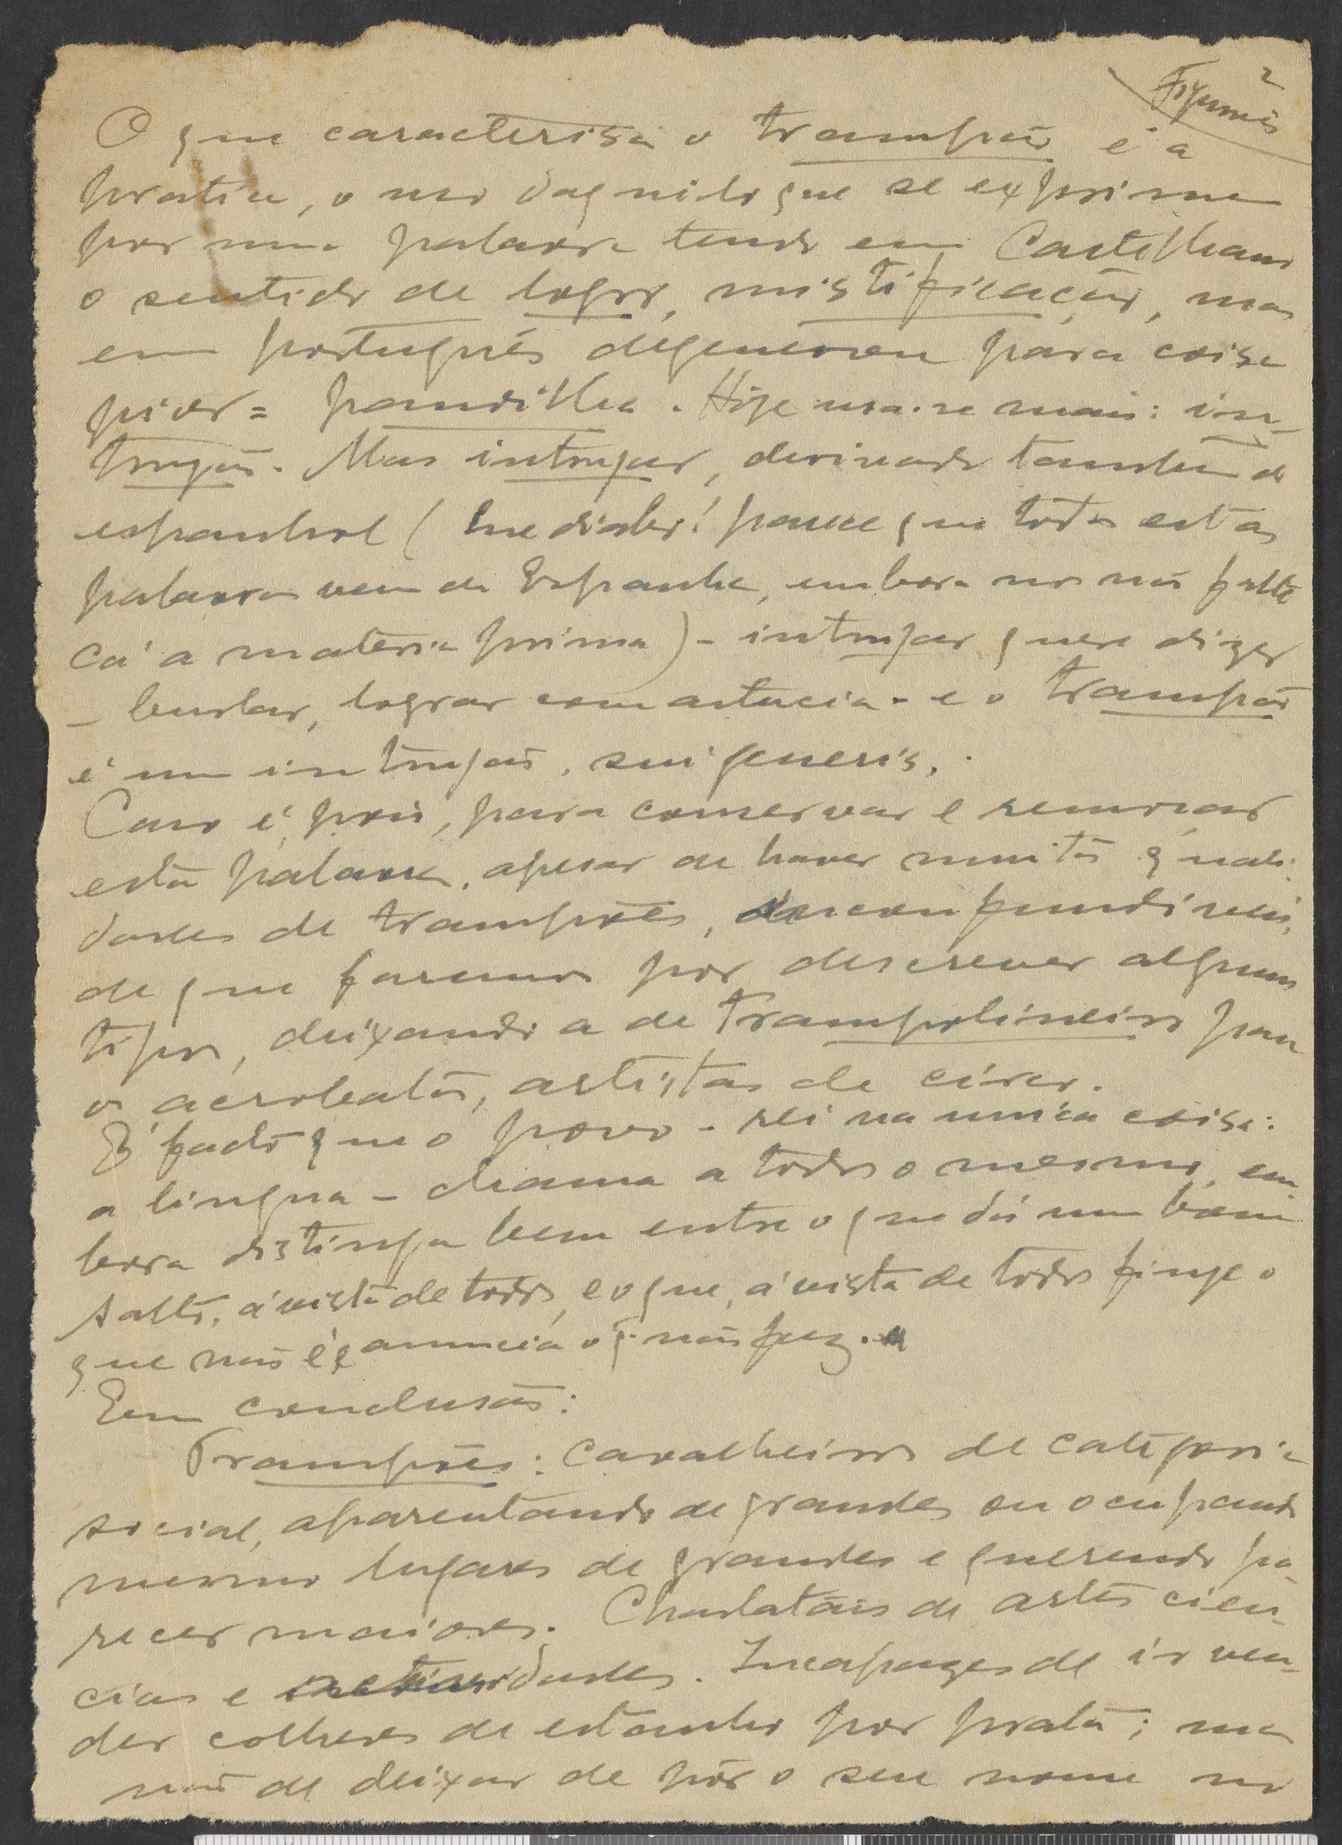 2
O que caracterisa o trampão é a
pratica, o uso daquilo que se exprime
por uma palavra tendo em Castelhano
o sentido de logro, mistificação, mas
em português degenerou para coisa
pior = pandilha. Hoje usa-se mais: in-
trujão. Mas intrujar, derivado tambem do
espanhol ( parece que todas estas
palavras vem da Espanha, embora não nos falte
cá a materia prima) - intrujar quere dizer
- burlar, lograr com astucia - e o trampão
é um intrujão, sui generis.
Caso é, pois, para conservar e renovar
esta palavra, apesar de haver muitas quali-
dades de trampões, inconfundiveis,
de que faremos por descrever alguns
tipos, deixando a de trampolineiro para
os acrobatas, artistas de circo.
É fado que o povo - rei na unica coisa:
a lingua - chama a todos o mesmo, em-
bora distinga bem entre o que dá um bom
salto, á vista de todos, e o que, á vista de todos finje o
que não é e anuncia o q. não fez.
Em conclusão:
Trampões: Cavalheiros de categoria
social, aparentando de grandes ou ocupando
mesmo lugares de grandes e querendo pa-
recer maiores. Charlatães de artes cien-
cias e . Incapazes de ir ven-
der colheres de estanho por prata; mas
não de deixar de pôr o seu nome no